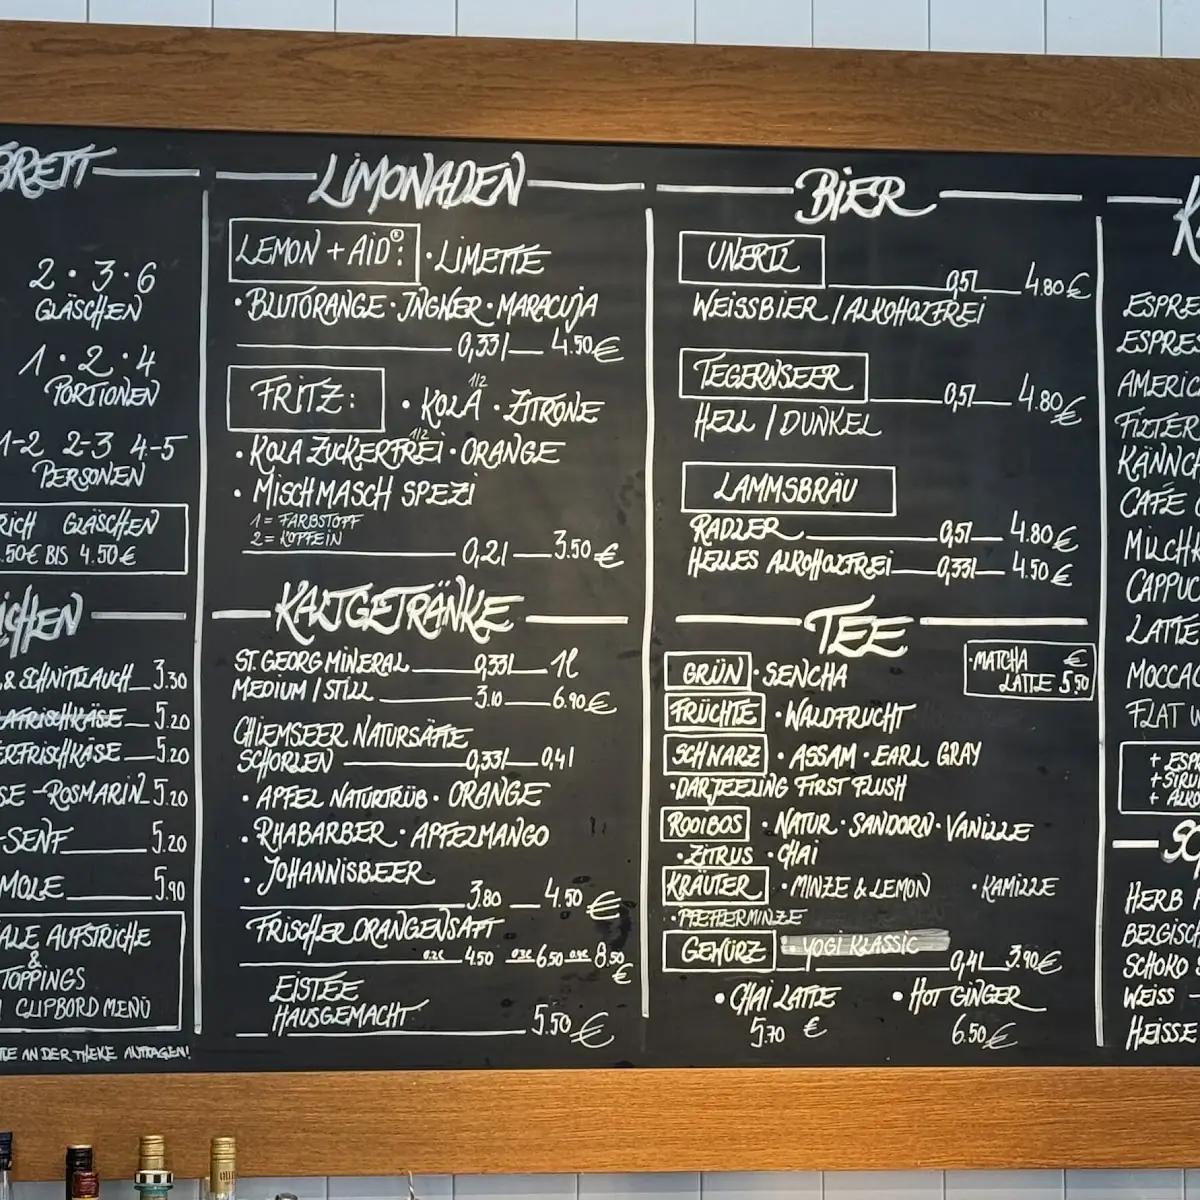 BRETT
2 · 3 · 6
GLÄSCHEN
1 · 2 · 4
PORTIONEN
1-2 2-3 4-5
PERSONEN
RICH GLÄSCHEN
.50€ BIS 4.50€
ICHEN
& SCHNITTLAUCH 3.30
5.20
ERFRISCHKÄSE 5.20
SE - ROSMARIN 5.20
-SENF 5.20
MOLE 5.90
ALE AUFSTRICHE
&
TOPPINGS
CLIPBORD MENÜ
TE AN DER THEKE ANFRAGEN!
LIMONADEN
LEMON + AID®: · LIMETTE
· BLUTORANGE · INGWER · MARACUJA
0,33l 4.50€
FRITZ: · KOLA 1/2 · ZITRONE
· KOLA ZUCKERFREI 1/2 · ORANGE
· MISCHMASCH SPEZI
1 = FARBSTOFF
2 = KOFFEIN
0,2l 3.50€
KALTGETRÄNKE
ST. GEORG MINERAL 0,33l 1l
MEDIUM / STILL 3.10 6.90€
CHIEMSEER NATURSÄFTE
SCHORLEN 0,33l 0,4l
· APFEL NATURTRÜB · ORANGE
· RHABARBER · APFELMANGO
· JOHANNISBEER
3.80 4.50€
FRISCHER ORANGENSAFT
0.2l 4.50 0.3l 6.50 0.4l 8.50
€
EISTEE
HAUSGEMACHT 5.50€
BIER
UNERTL 0,5l 4.80€
WEISSBIER / ALKOHOLFREI
TEGERNSEER 0,5l 4.80€
HELL / DUNKEL
LAMMSBRÄU
RADLER 0,5l 4.80€
HELLES ALKOHOLFREI 0,33l 4.50€
TEE
· MATCHA €
LATTE 5.50
GRÜN · SENCHA
FRÜCHTE · WALDFRUCHT
SCHWARZ · ASSAM · EARL GRAY
· DARJEELING FIRST FLUSH
ROOIBOS · NATUR · SANDORN · VANILLE
· ZITRUS · CHAI
KRÄUTER · MINZE & LEMON · KAMILLE
· PFEFFERMINZE
GEWÜRZ · YOGI KLASSIC 0,4l 3.90€
· CHAI LATTE · HOT GINGER
5.70 € 6.50€
K
ESPRE
ESPRES
AMERIC
FILTER
KÄNNCH
CAFÉ
MILCHK
CAPPUC
LATTE
MOCCAC
FLAT W
+ ESPR
+ SIRU
+ ALKO
SC
HERB
BELGISCH
SCHOKO
WEISS
HEISSE